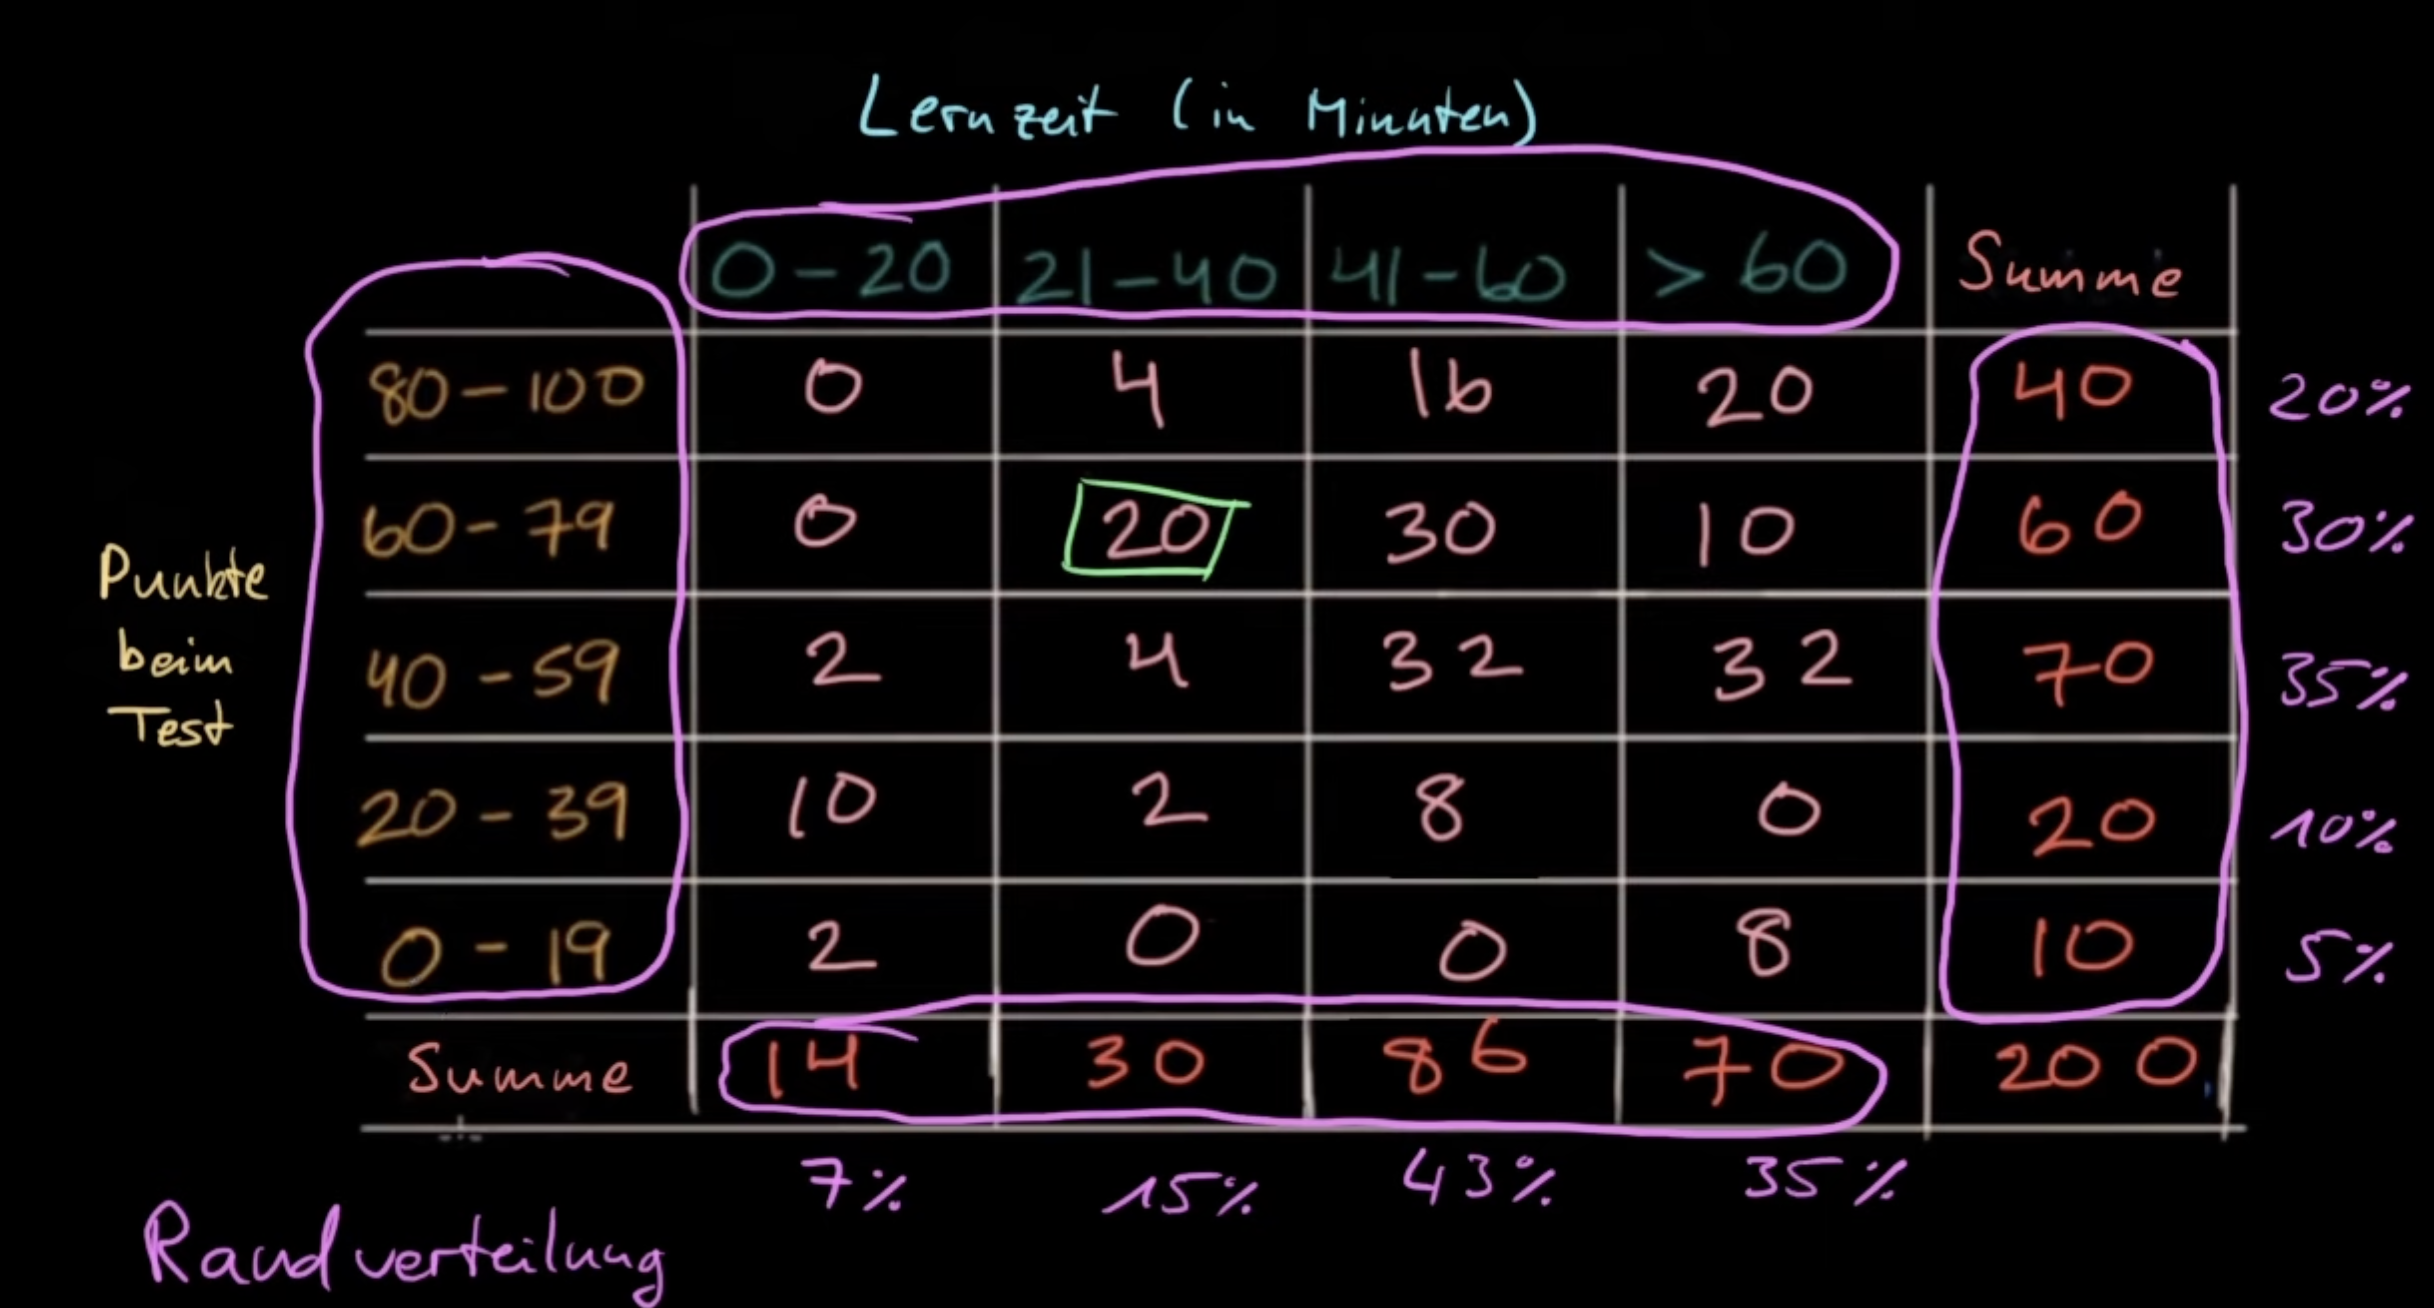 Lernzeit (in Minuten)
0-20 21-40 41-60 > 60 Summe
80-100 0 4 16 20 40 20%
60-79 0 20 30 10 60 30%
Punkte
beim
Test
40-59 2 4 32 32 70 35%
20-39 10 2 8 0 20 10%
0-19 2 0 0 8 10 5%
Summe 14 30 86 70 200
7% 15% 43% 35%
Randverteilung